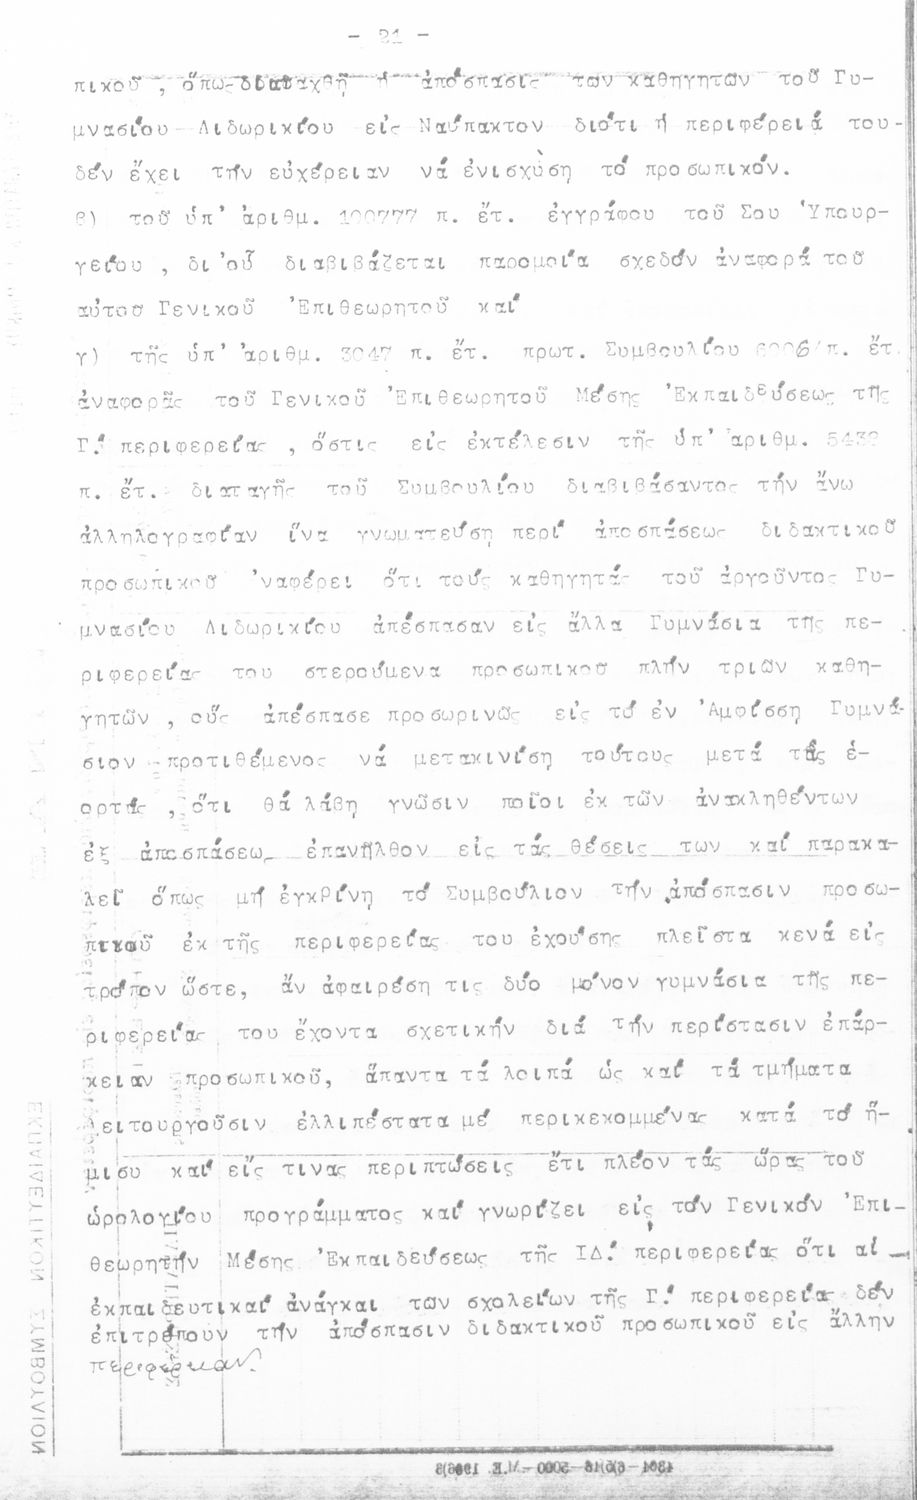 - 21 -
πικοῦ , ὅπως διαταχθῇ ἡ ἀπόσπασις των καθηγητῶν τοῦ Γυ-
μνασίου Λιδωρικίου εἰς Ναύπακτον διότι ἡ περιφέρειά του-
δέν ἔχει τήν εὐχέρειαν νά ἐνισχὺση τό προσωπικόν.
β) τοῦ ὑπ' ἀριθμ. 100777 π. ἔτ. ἐγγράφου τοῦ Σου Ὑπουρ-
γείου , δι'οὗ διαβιβάζεται παρομοία σχεδόν ἀναφορά τοῦ
αὐτοῦ Γενικοῦ Ἐπιθεωρητοῦ καί
γ) τῆς ὑπ' ἀριθμ. 3047 π. ἔτ. πρωτ. Συμβουλίου 6006/π. ἔτ.
ἀναφορᾶς τοῦ Γενικοῦ Ἐπιθεωρητοῦ Μέσης Ἐκπαιδεύσεως τῆς
Γ.' περιφερείας , ὅστις εἰς ἐκτέλεσιν τῆς ὑπ' ἀριθμ. 5439
π. ἔτ. διαταγῆς τοῦ Συμβουλίου διαβιβάσαντος τήν ἄνω
ἀλληλογραφίαν ἵνα γνωματεύση περί ἀποσπάσεως διδακτικοῦ
προσωπικοῦ 'ναφέρει ὅτι τούς καθηγητάς τοῦ ἀργοῦντος Γυ-
μνασίου Λιδωρικίου ἀπέσπασαν εἰς ἄλλα Γυμνάσια τῆς πε-
ριφερείας του στερούμενα προσωπικοῦ πλήν τριῶν καθη-
γητῶν , οὕς ἀπέσπασε προσωρινῶς εἰς τό ἐν Ἀμφίσση Γυμνά-
σιον προτιθέμενος νά μετακινίση τούτους μετά τάς ἑ-
ορτάς , ὅτι θά λάβη γνῶσιν ποῖοι ἐκ τῶν ἀνακληθέντων
ἐξ ἀποσπάσεως ἐπανῆλθον εἰς τάς θέσεις των καί παρακα-
λεῖ ὅπως μή ἐγκρίνη τό Συμβούλιον τήν ἀπόσπασιν προσω-
πικοῦ ἐκ τῆς περιφερείας του ἐχούσης πλεῖστα κενά εἰς
τρόπον ὥστε, ἄν ἀφαιρέση τις δύο μόνον γυμνάσια τῆς πε-
ριφερείας του ἔχοντα σχετικήν διά τήν περίστασιν ἐπάρ-
κειαν προσωπικοῦ, ἅπαντα τά λοιπά ὡς καί τά τμήματα
λειτουργοῦσιν ἐλλιπέστατα μέ περικεκομμένας κατά τό ἥ-
μισυ καί εἴς τινας περιπτώσεις ἔτι πλέον τάς ὥρας τοῦ
ὡρολογίου προγράμματος καί γνωρίζει εἰς τόν Γενικόν Ἐπι-
θεωρητήν Μέσης Ἐκπαιδεύσεως τῆς ΙΔ.' περιφερείας ὅτι αἱ
ἐκπαιδευτικαί ἀνάγκαι τῶν σχολείων τῆς Γ.' περιφερείας δέν
ἐπιτρέπουν τήν ἀπόσπασιν διδακτικοῦ προσωπικοῦ εἰς ἄλλην
περιφέρειαν.
ΕΚΠΑΙΔΕΥΤΙΚΟΝ ΣΥΜΒΟΥΛΙΟΝ